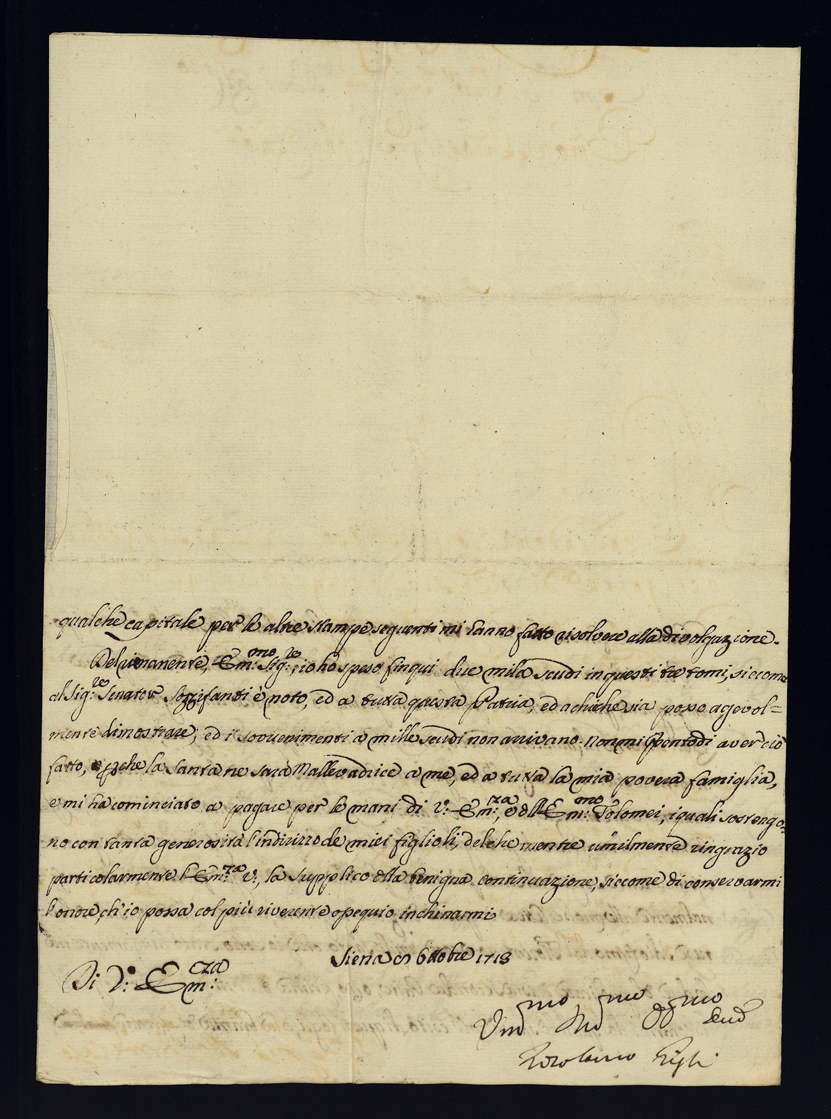 qualche capitale per le altre stampe seguenti mi hanno fatto risolvere alla divolgazione.
Del rimanente, Em:mo Sig:re, io ho speso finqui due mila scudi in questi tre tomi, siccome
al Sig:re Senatore è noto, ed a tutta questa Patria, ed a chiche sia posso agevol=
mente dimostrare, ed i sovvenimenti a mille scudi non arrivano. Non mi pento di aver ciò
fatto, perche la Santa ne sarà Mallevadrice a me, ed a tutta la mia povera famiglia,
e mi ha cominciato a pagare per le mani di V: Em:za, e dell Em:mo Tolomei, i quali sostengo=
no con tanta generosità l'indirizzo de miei figlioli, del che mentre umilmente ringrazio
particolarmente l'Em:za V, la supplico della benigna continuazione, siccome di conservarmi
l'onore, ch'io possa col più riverente ossequio inchinarmi
Siena Ottobre 1713
Di V: Em:za
Um:mo Ser
Girolamo Gigli